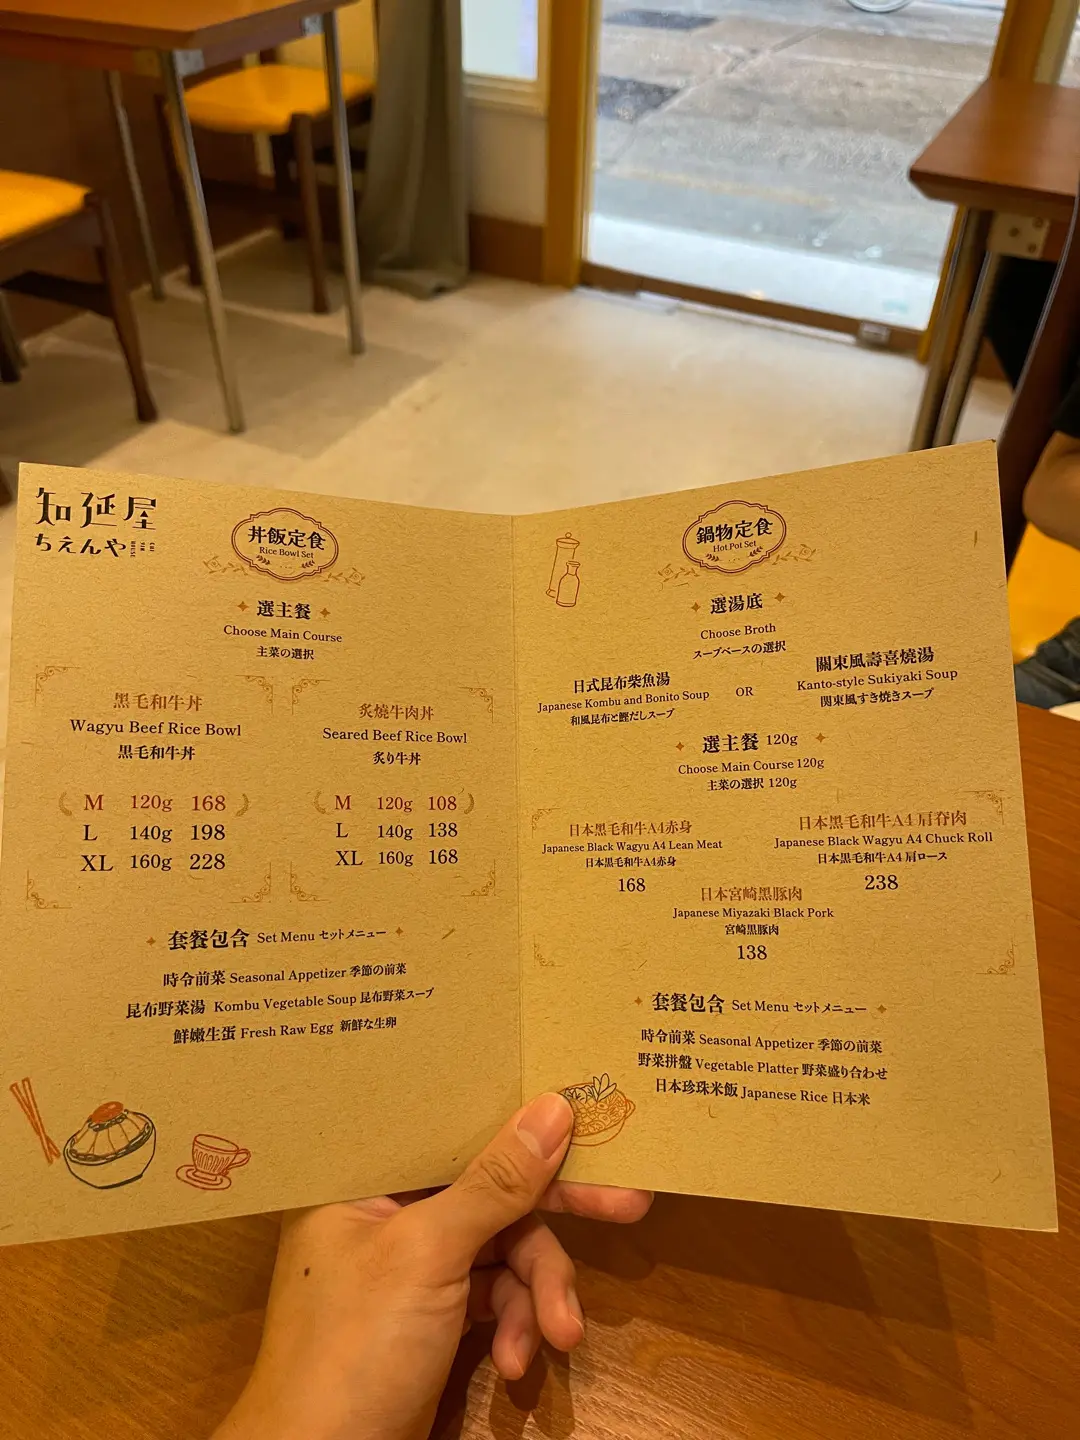 知延屋
ちえんや
丼飯定食
Rice Bowl Set
選主餐
Choose Main Course
主菜の選択
黑毛和牛丼
Wagyu Beef Rice Bowl
黒毛和牛丼
M 120g 168
L 140g 198
XL 160g 228
炙燒牛肉丼
Seared Beef Rice Bowl
炙り牛丼
M 120g 108
L 140g 138
XL 160g 168
套餐包含 Set Menu セットメニュー
時令前菜 Seasonal Appetizer 季節の前菜
昆布野菜湯 Kombu Vegetable Soup 昆布野菜スープ
鮮嫩生蛋 Fresh Raw Egg 新鮮な生卵
鍋物定食
Hot Pot Set
選湯底
Choose Broth
スープベースの選択
日式昆布柴魚湯
Japanese Kombu and Bonito Soup
和風昆布と鰹だしスープ
OR
關東風壽喜燒湯
Kanto-style Sukiyaki Soup
関東風すき焼きスープ
選主餐 120g
Choose Main Course 120g
主菜の選択 120g
日本黑毛和牛A4赤身
Japanese Black Wagyu A4 Lean Meat
日本黒毛和牛A4赤身
168
日本黑毛和牛A4 肩脊肉
Japanese Black Wagyu A4 Chuck Roll
日本黒毛和牛A4 肩ロース
238
日本宮崎黑豚肉
Japanese Miyazaki Black Pork
宮崎黒豚肉
138
套餐包含 Set Menu セットメニュー
時令前菜 Seasonal Appetizer 季節の前菜
野菜拼盤 Vegetable Platter 野菜盛り合わせ
日本珍珠米飯 Japanese Rice 日本米